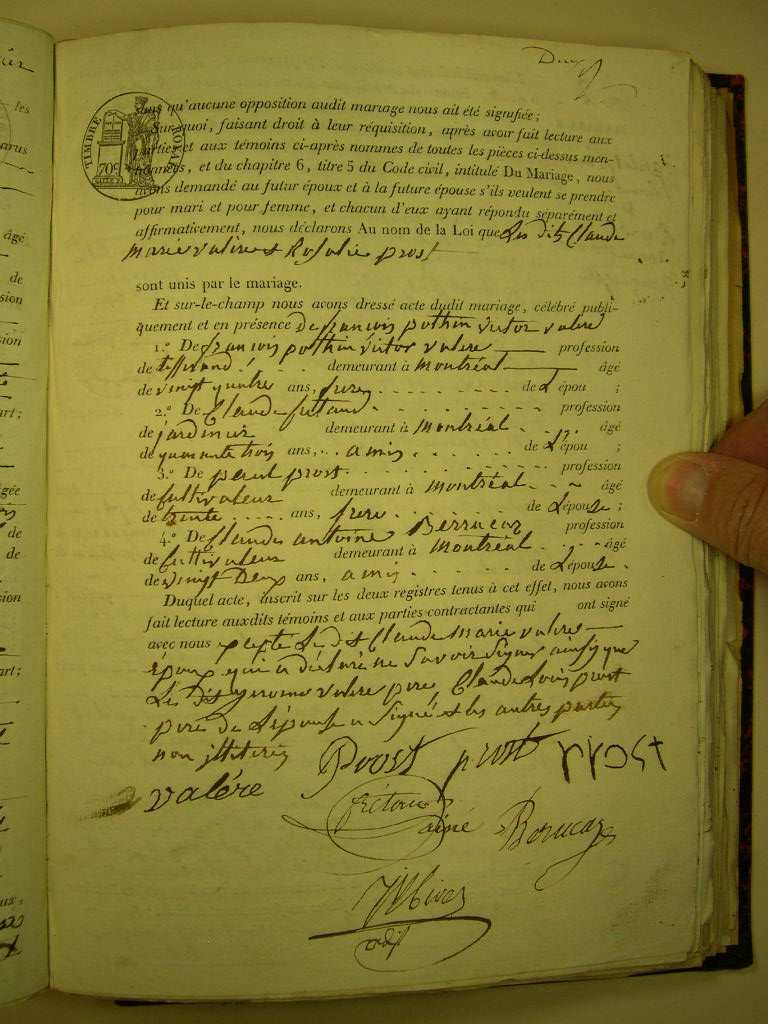 Deux
TIMBRE ROYAL
70c
sans qu'aucune opposition audit mariage nous ait été signifiée;
Sur quoi, faisant droit à leur réquisition, après avoir fait lecture aux
parties et aux témoins ci-après nommés de toutes les pièces ci-dessus men-
tionnées, et du chapitre 6, titre 5 du Code civil, intitulé Du Mariage, nous
avons demandé au futur époux et à la future épouse s'ils veulent se prendre
pour mari et pour femme, et chacun d'eux ayant répondu séparément et
affirmativement, nous déclarons Au nom de la Loi que Les dits Claude
Marie valere et Rosalie prost
sont unis par le mariage.
Et sur-le-champ nous avons dressé acte dudit mariage, célébré publi-
quement et en présence De francois pothin victor valere
1.º De francois pothin victor valere profession
de tisserand demeurant à Montréal âgé
de vingt quatre ans, frere de L'épou ;
2.º De Claude profession
de jardinier demeurant à Montréal âgé
de quarente trois ans, amis de L'épou ;
3.º De paul prost profession
de cultivateur demeurant à Montréal âgé
de trente ans, frere de L'épouse ;
4.º De Claude antoine Berrucaz profession
de cultivateur demeurant à Montréal âgé
de vingt Deux ans, amis de L'épouse .
Duquel acte, inscrit sur les deux registres tenus à cet effet, nous avons
fait lecture auxdits témoins et aux parties contractantes qui ont signé
avec nous Le dit Claude Marie valere
époux qui a déclaré ne savoir signer ainsi que
Les dit jerome valere pere, Claude Louis prost
pere de L'épouse a signé et les autres parties
non
Prost prost prost
valére
ainé Berrucaz
adjt